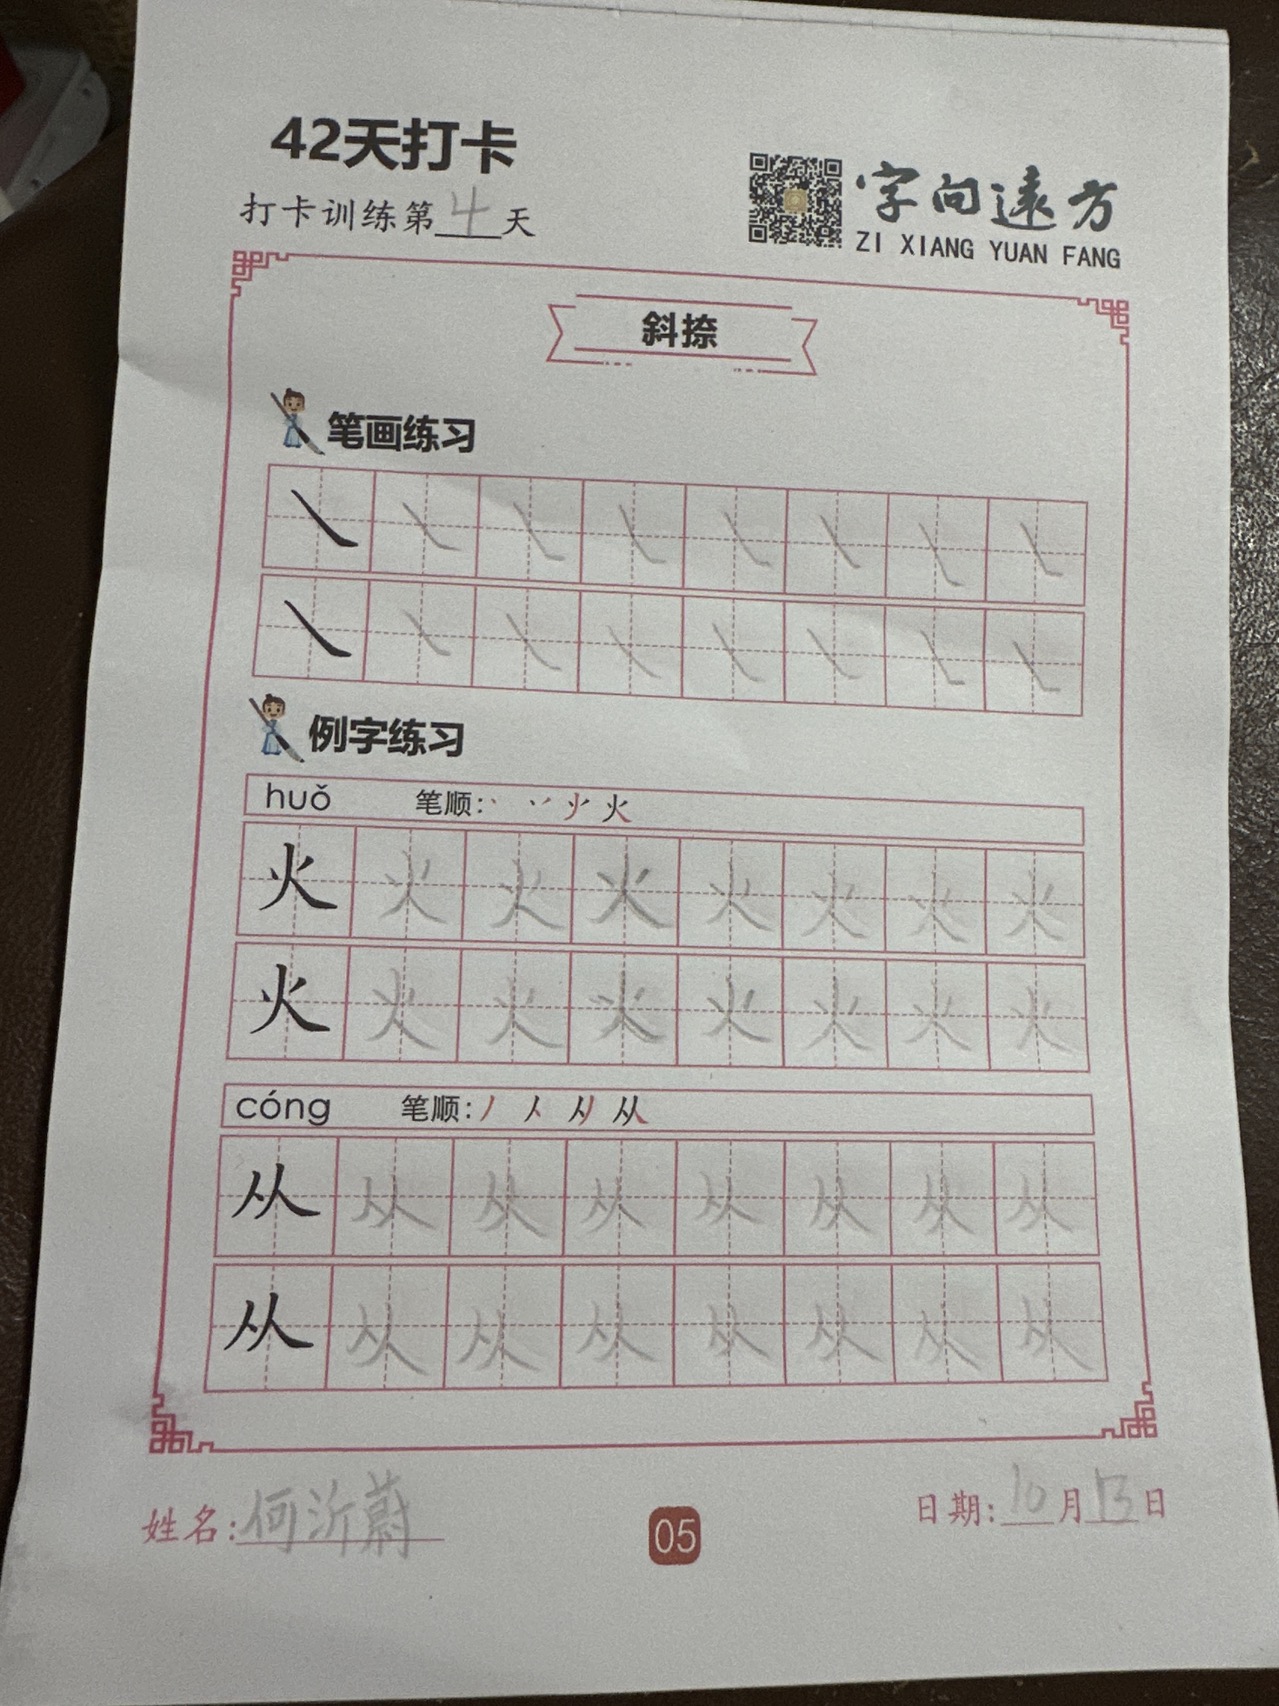 42天打卡
打卡训练第4天
字向遠方
ZI XIANG YUAN FANG
斜捺
笔画练习
例字练习
huǒ 笔顺: 火
火 火 火 火 火 火 火 火
火 火 火 火 火 火 火 火
cóng 笔顺: 丿 人 从
从 从 从 从 从 从 从 从
从 从 从 从 从 从 从 从
姓名:何沂蔚
05
日期:10月13日